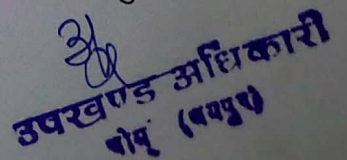 उपखण्ड अधिकारी
चोमूं (जयपुर)